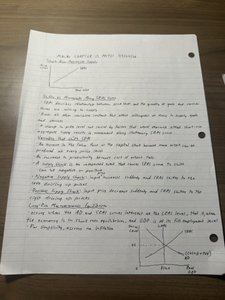 Macro Chapter 13 Notes
Short Run Aggregate Supply
SRAS
Real GDP
Shifts vs Movements Along SRAS Curve
- SRAS describes relationship between price level and the quantity of goods and services
firms are willing to supply
- Given all other variables constant that affect willingness of firms to supply goods
and services
- A change in price level not caused by factors that would otherwise affect short-run
aggregate supply results in movement along stationary SRAS curve
Variables that shift SRAS
- An increase in the labor force or the capital stock because more output can be
produced at every price level
- An increase in productivity because cost of output falls
- A supply shock is an unexpected event that causes SRAS curve to shift
Can be negative or positive
- Negative Supply Shock: input prices increase suddenly and SRAS shifts to the
left driving up prices
- Positive Supply Shock: input prices decrease suddenly and SRAS shifts to the
right driving down prices
Long-Run Macroeconomic Equilibrium
- Occurs when the AD and SRAS curves intersect at the LRAS level, that is when
the economy is in short-run equilibrium, and GDP is at its full-employment level
- For simplicity, assume no inflation
Price
Level
LRAS
SRAS
AD